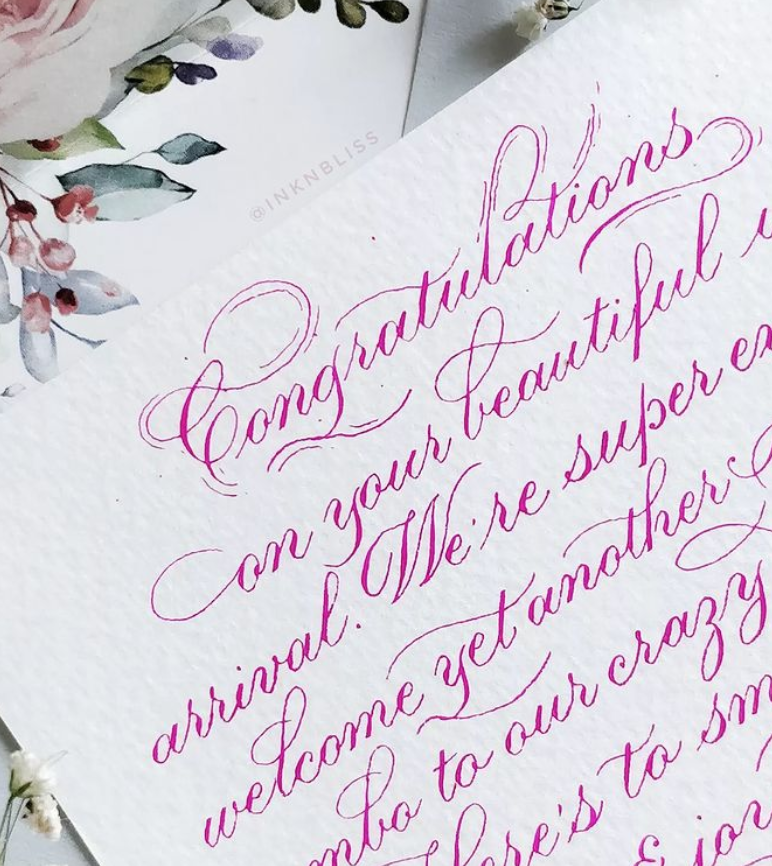 @INKNBLISS
Congratulations
on your beautiful
arrival. We're super
welcome yet another
to our crazy
to